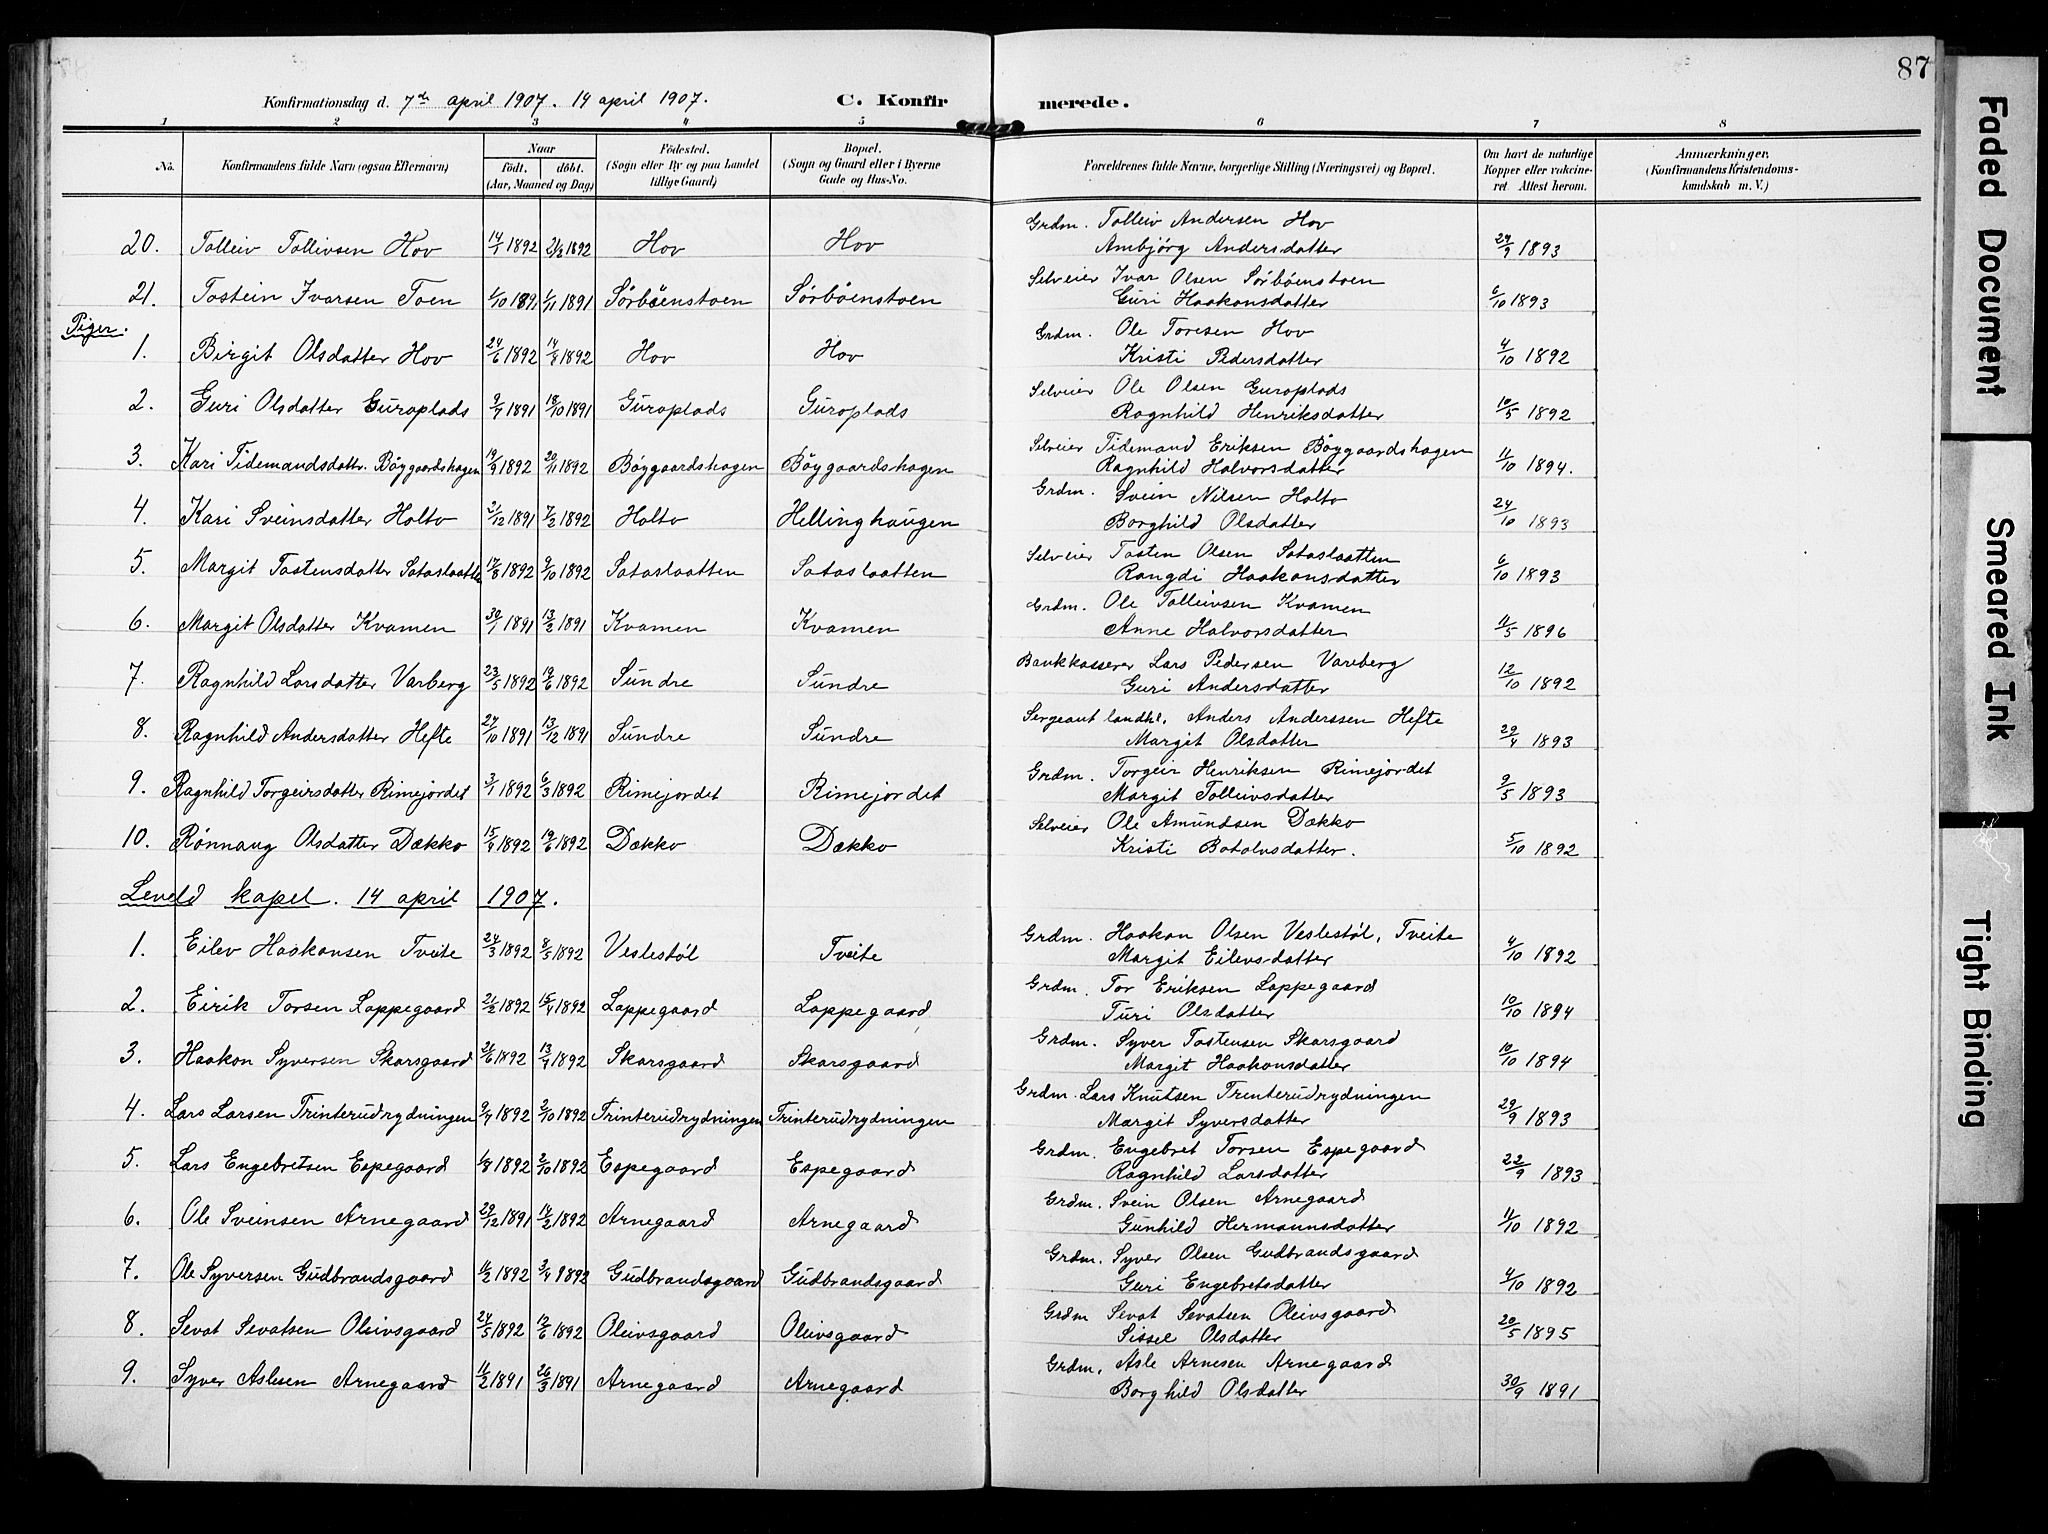 87
Konfirmationsdag d. 7de april 1907. 14 april 1907. C. Konfirmerede.
1 2 3 4 5 6 7 8
No. Konfirmandens fulde Navn (ogsaa Efternavn) Naar født. døbt. (Aar, Maaned og Dag) Fødested. (Sogn eller By og paa Landet tillige Gaard) Bopæl. (Sogn og Gaard eller i Byerne Gade og Hus-No. Forældrenes fulde Navne, borgerlige Stilling (Næringsvei) og Bopæl. Om havt de naturlige Kopper eller vakcineret. Attest herom. Anmærkninger. (Konfirmandens Kristendomskundskab m. V.)
20. Tolleiv Tollivsen Hov 14/1 1892 21/2 1892 Hov Hov Grdm. Tolleiv Andersen Hov
Ambjørg Andersdatter 29/9 1893
21. Tostein Ivarsen Toen 1/10 1891 1/11 1891 Sørbøenstoen Sørbøenstoen Selveier Ivar Olsen Sørbøenstoen
Guri Haakonsdatter 6/10 1893
Piger.
1. Birgit Olsdatter Hov 24/6 1892 14/8 1892 Hov Hov Grdm. Ole Toresen Hov
Kristi Pedersdatter 4/10 1892
2. Guri Olsdatter Guroplads 9/9 1891 18/10 1891 Guroplads Guroplads Selveier Ole Olsen Guroplads
Ragnhild Henriksdatter 10/5 1892
3. Kari Tidemandsdattr. Bøygaardshagen 19/9 1892 20/11 1892 Bøygaardshagen Bøygaardshagen Selveier Tidemand Eriksen Bøygaardshagen
Ragnhild Halvorsdatter 11/10 1894.
4. Kari Sveinsdatter Holto 2/12 1891 7/2 1892 Holto Hellinghaugen Grdm. Svein Nilsen Holto
Borghild Olsdatter 24/10 1893
5. Margit Tostensdatter Sataslaatten 17/8 1892 9/10 1892 Sataslaatten Sataslaatten Selveier Tosten Olsen Sataslaatten
Rangdi Haakonsdatter 6/10 1893
6. Margit Olsdatter Kvamen 30/1 1891 13/2 1891 Kvamen Kvamen Grdm. Ole Tolleivsen Kvamen
Anne Halvorsdatter 11/5 1896
7. Ragnhild Larsdatter Varberg 23/5 1892 19/6 1892 Sundre Sundre Bankkasserer Lars Pedersen Vareberg
Guri Andersdatter 12/10 1892
8. Ragnhild Andersdatter Hefte 27/10 1891 13/12 1891 Sundre Sundre Sergeant landhl. Anders Anderssen Hefte
Margit Olsdatter 29/4 1893
9. Ragnhild Torgeirsdatter Rimejordet 3/1 1892 6/3 1892 Rimejordet Rimejordet Grdm. Torgeir Henriksen Rimejordet
Margit Tolleivsdatter 9/5 1893
10. Rønnaug Olsdatter Dækko 15/4 1892 19/6 1892 Dækko Dækko Selveier Ole Amundsen Dækko
Kristi Botolvsdatter. 5/10 1892
Leveld kapel. 14 april 1907.
1. Eilev Haakonsen Tveite 24/3 1892 8/5 1892 Veslestøl Tveite Grdm. Haakon Olsen Veslestøl, Tveite
Margit Eilevsdatter 4/10 1892
2. Eirik Torsen Loppegaard 21/2 1892 15/4 1892 Loppegaard Loppegaard Grdm. Tor Eriksen Loppegaard
Turi Olsdatter 10/10 1894
3. Haakon Syversen Skarsgaard 21/6 1892 13/9 1892 Skarsgaard Skarsgaard Grdm. Syver Tostensen Skarsgaard
Margit Haakonsdatter 10/10 1894
4. Lars Larsen Trinterudrydningen 9/9 1892 2/10 1892 Trinterudrydningen Trinterudrydningen Grdm. Lars Knutsen Trinterudrydningen
Margit Syversdatter 29/9 1893
5. Lars Engebretsen Espegaard 1/8 1892 2/10 1892 Espegaard Espegaard Grdm. Engebret Torsen Espegaard
Ragnhild Larsdatter 22/9 1893
6. Ole Sveinsen Arnegaard 29/12 1891 14/2 1892 Arnegaard Arnegaard Grdm. Svein Olsen Arnegaard
Gunhild Hermannsdatter 11/10 1892
7. Ole Syversen Gudbrandsgaard 11/2 1892 3/4 1892 Gudbrandsgaard Gudbrandsgaard Grdm. Syver Olsen Gudbrandsgaard
Guri Engebretsdatter 4/10 1892
8. Sevat Sevatsen Oleivsgaard 24/5 1892 12/6 1892 Oleivsgaard Oleivsgaard Grdm Sevat Sevatsen Oleivsgaard
Sissel Olsdatter 20/5 1895
9. Syver Aslesen Arnegaard 11/2 1891 26/3 1891 Arnegaard Arnegaard Grdm. Asle Arnesen Arnegaard
Borghild Olsdatter 30/9 1891
Faded Document
Smeared Ink
Tight Binding